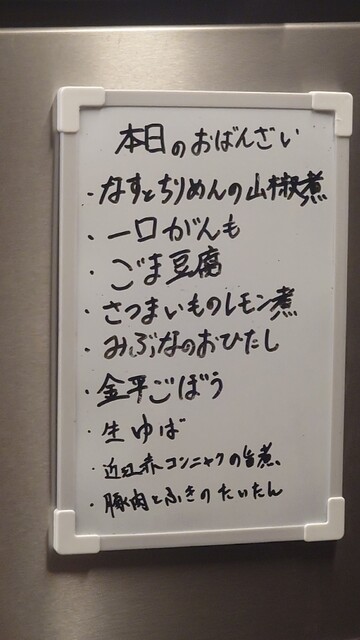 本日のおばんざい
・なすとちりめんの山椒煮
・一口がんも
・ごま豆腐
・さつまいものレモン煮
・みぶなのおひたし
・金平ごぼう
・生ゆば
・近江赤コンニャクの旨煮
・豚肉とふきのたいたん